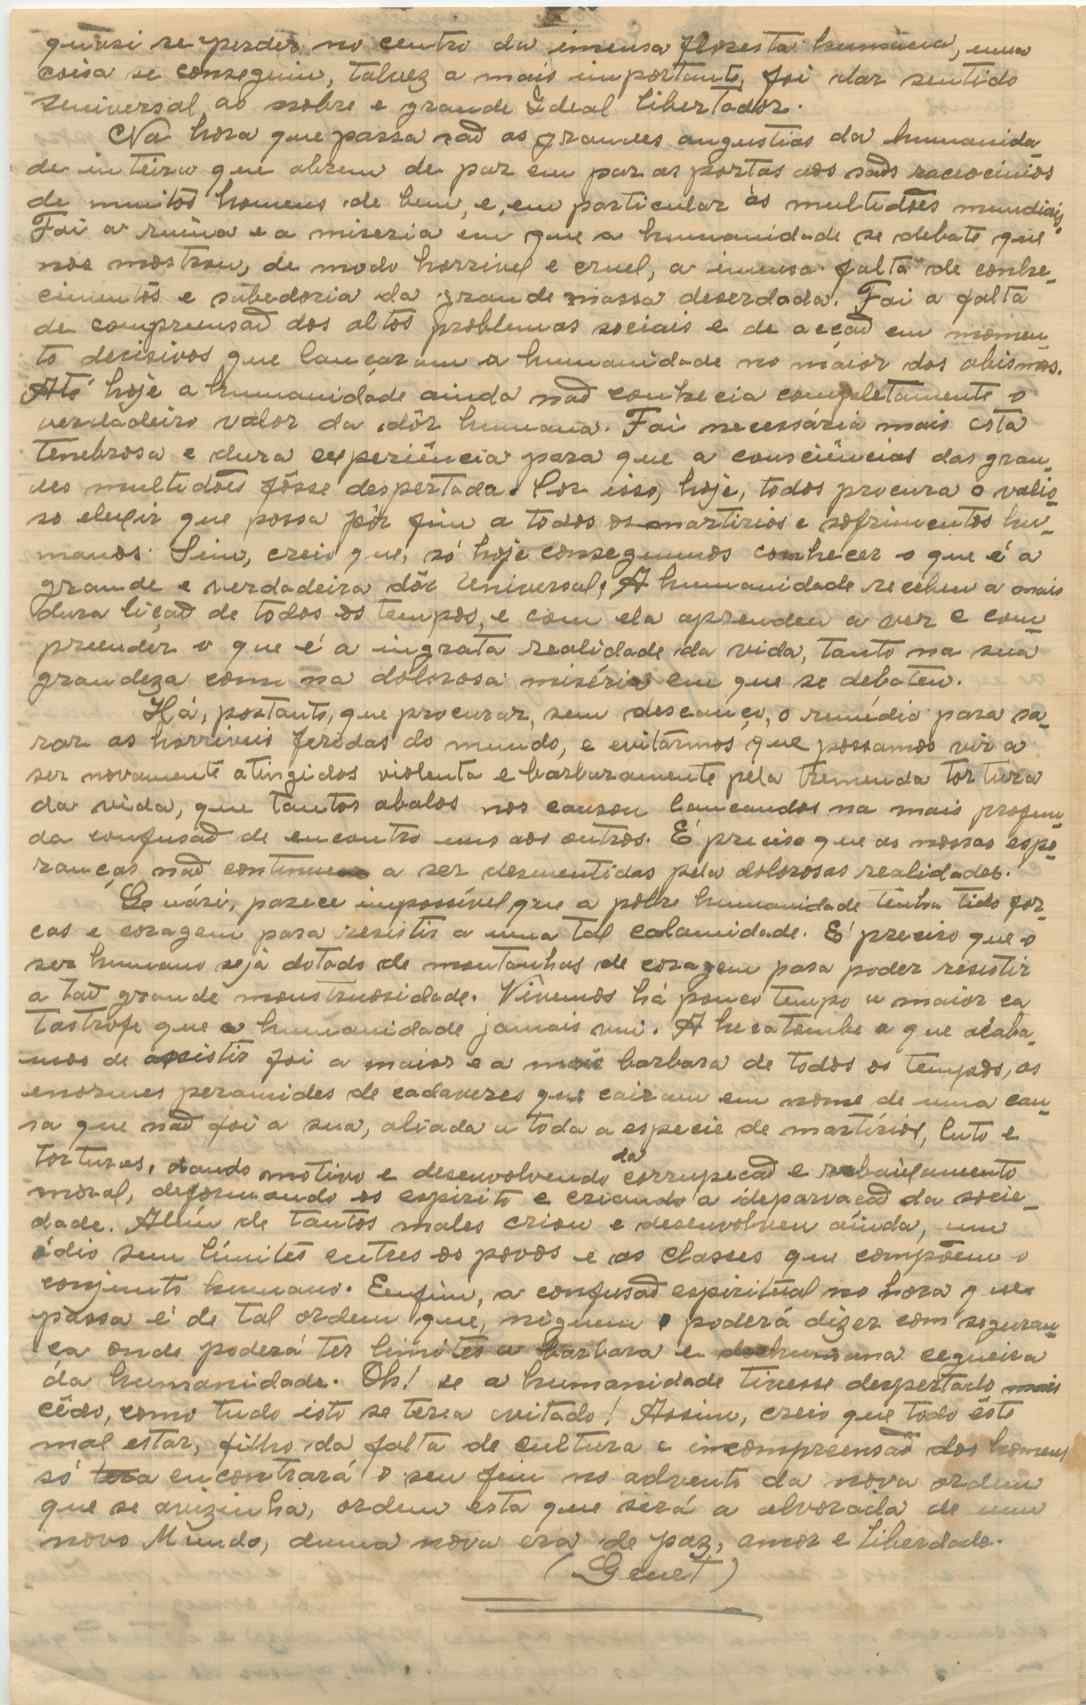 quasi se perder no centro da imensa floresta humana, uma
coisa se conseguiu, talvez a mais importante, foi dar sentido
Universal ao nobre e grande Ideal libertador.
Na hora que passa são as grandes angustias da humanida-
de inteira que abrem de par em par as portas aos sãos raciocinios
de muitos homens de bem, e, em particular às multidões mundiais.
Foi a ruina e a miseria em que a humanidade se debate que
nos mostrou, de modo horrivel e cruel, a imensa falta de conhe-
cimentos e sabedoria da grande massa deserdada. Foi a falta
de compreensão dos altos problemas sociais e de acção em momen-
to decisivos que lançaram a humanidade no maior dos abismos.
Até hoje a humanidade ainda não conhecia completamente o
verdadeiro valor da dôr humana. Foi necessária mais esta
tenebrosa e dura experiência para que a consciências das gran-
des multidões fôsse despertada. Por isso, hoje, todos procura o valio-
so elexir que possa pôr fim a todos os martirios e sofrimentos hu-
manos. Sim, creio que, só hoje conseguimos conhecer o que é a
grande e verdadeira dôr Universal. A humanidade recebeu a mais
dura lição de todos os tempos, e com ela aprendeu a ver e com-
preender o que é a ingrata realidade da vida, tanto na sua
grandeza como na dolorosa miséria em que se debateu.
Há, portanto, que procurar, sem descanço, o remédio para sa-
rar as horriveis feridas do mundo, e evitármos que possamos vir a
ser novamente atingidos violenta e barbaramente pela tremenda tortura
da vida, que tantos abalos nos causou lancandos na mais profun-
da confusão de encontro uns aos outros. É preciso que as nossas espe-
ranças não continuem a ser desmentidas pela dolorosas realidades.
Quási, parece impossível que a pobre humanidade tenha tido for-
cas e coragem para resistir a uma tal calamidade. É preciso que o
ser humano seja dotado de montanhas de coragem para poder resistir
a tão grande monstruosidade. Vivemos há pouco tempo a maior ca
tastrofe que a humanidade jamais viu. A hecatombe a que acaba-
mos de assistir foi a maior e a mais barbara de todos os tempos, as
enormes peramides de cadaveres que cairam em nome de uma cau-
sa que não foi a sua, aliada a toda a especie de martírios, luto e
torturas, dando motivo e desenvolvendo da corrupeção e rebaixamento
moral, deformando os espirito e criando a deparvação da socie-
dade. Além de tantos males criou e desenvolveu aínda, um
ódio sem límites entres os povos e as classes que compõem o
conjunto humano. Enfim, a confusão espiritual na hora que
passa é de tal ordem que, niguem poderá dizer com seguran-
ça onde poderá ter limites a barbara e deshumana cegueira
da humanidade. Oh! se a humanidade tivesse despertado mais
cêdo, como tudo isto se teria evitado! Assim, creio que todo êste
mal estar, filho da falta de cultura e incompreensão dos homens
só encontrará o seu fim no advento da nova ordem
que se avizinha, ordem esta que será a alvorada de um
novo Mundo, duma nova era de paz, amor e liberdade.
(Genet)